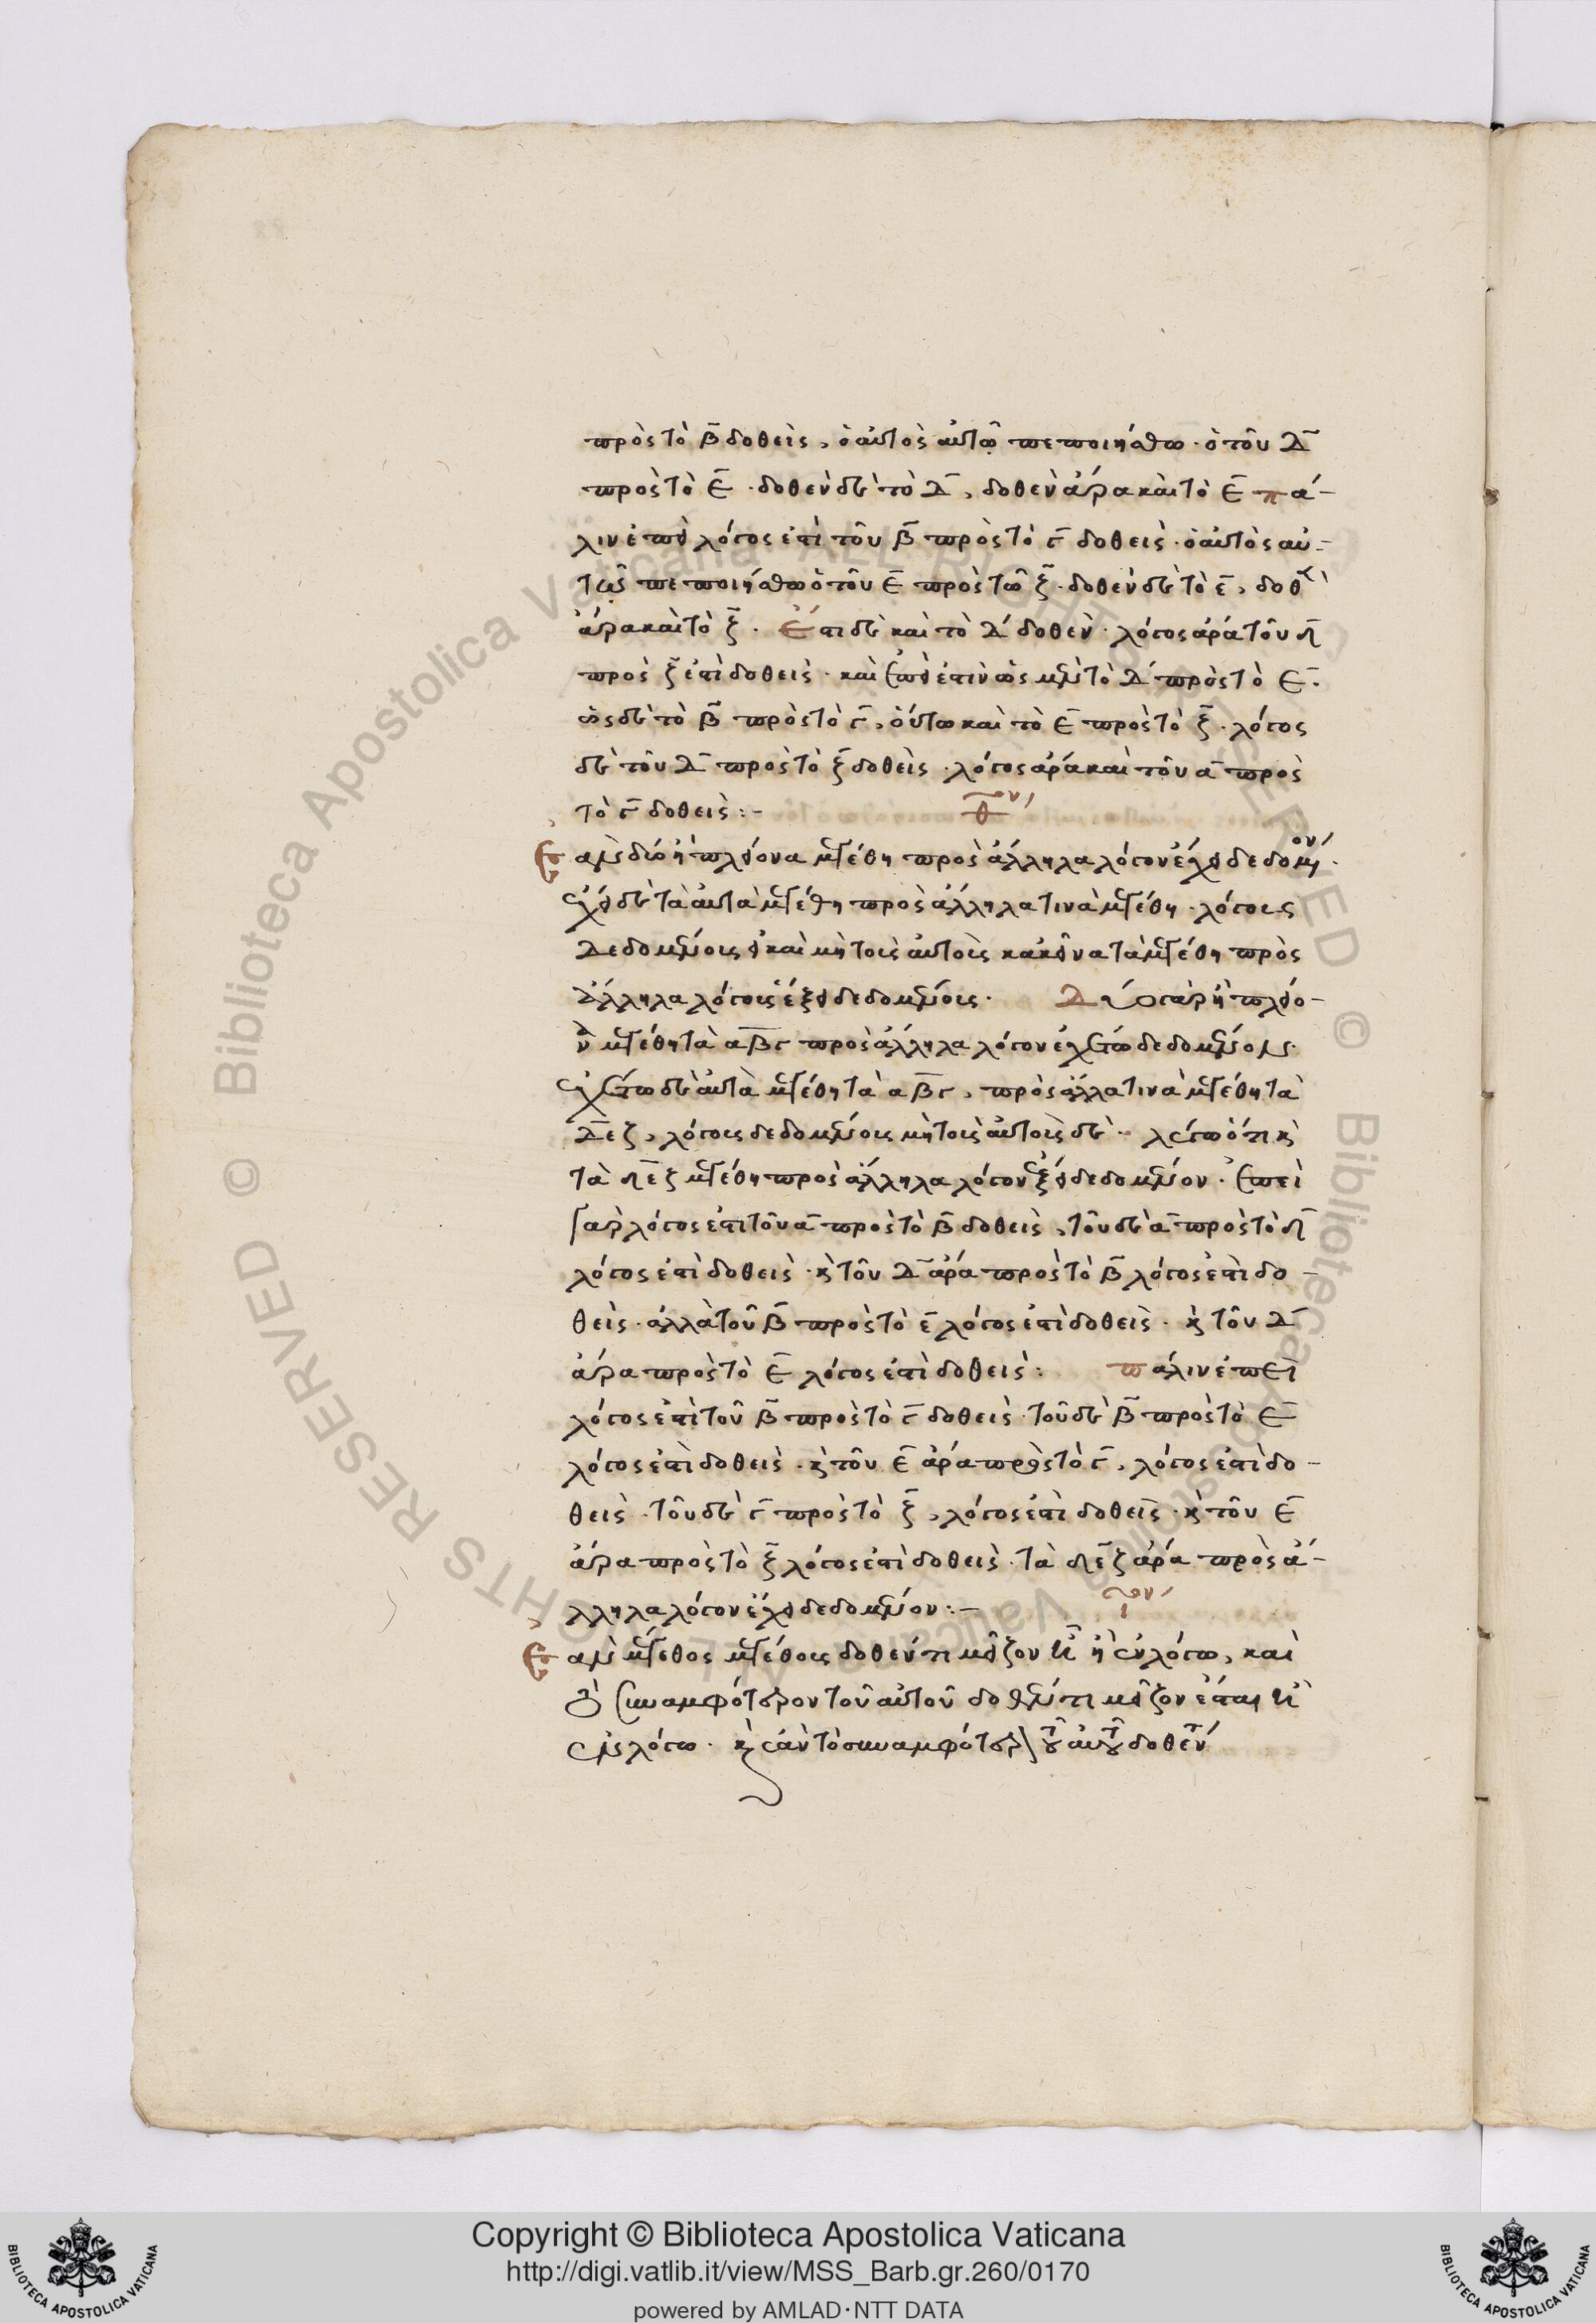 πρὸς τὸ β̄ δοθεὶς, ὁ αὐτὸς αὐτῷ πεποιήσθω · ὁ τοῦ δ̄
πρὸς τὸ ε̄ · δοθὲν δὲ τὸ δ̄, δοθὲν ἄρα καὶ τὸ ε̄ πά-
λιν ἐπεὶ λόγος ἐστὶ τοῦ β̄ πρὸς τὸ γ̄ δοθεὶς · ὁ αὐτὸς αὐ-
τῷ πεποιήσθω ὁ τοῦ ε̄ πρὸς τῶ ζ̄ · δοθὲν δὲ τὸ ε̄, δοθὲν
ἄρα καὶ τὸ ζ̄ · ἔστι δὲ καὶ τὸ δ̄ δοθὲν · λόγος ἄρα τοῦ δ̄
πρὸς ζ̄ ἐστὶ δοθεὶς · καὶ ἐπεί ἐστιν ὡς μὲν τὸ δ̄ πρὸς τὸ ε̄ ·
ὡς δὲ τὸ β̄ πρὸς τὸ γ̄, οὕτω καὶ τὸ ε̄ πρὸς τὸ ζ̄ · λόγος
δὲ τοῦ δ̄ πρὸς τὸ ζ̄ δοθεὶς · λόγος ἄρα καὶ τοῦ ᾱ πρὸς
τὸ γ̄ δοθεὶς :- θον
Ἐὰν δύο ἢ πλείονα μεγέθη πρὸς ἄλληλα λόγον ἔχει δεδομένον ·
ἔχει δὲ τὰ αὐτὰ μεγέθη πρὸς ἄλληλα τινὰ μεγέθη · λόγοις
δεδομένοις εἰ καὶ μὴ τοῖς αὐτοῖς κακεῖνα τὰ μεγέθη πρὸς
ἄλληλα λόγοις ἕξει δεδομένοις · Δύο γὰρ ἢ πλείο-
να μεγέθη τὰ αβγ πρὸς ἄλληλα λόγον ἐχέτω δεδομένον ·
ἐχέτω δὲ αὐτὰ μεγέθη τὰ αβγ, πρὸς ἄλλα τινὰ μεγέθη τὰ
δεζ, λόγοις δεδομένοις μὴ τοῖς αὐτοῖς δὲ · λέγω ὅτι κὲ
τὰ δεζ μεγέθη πρὸς ἄλληλα λόγον ἕξει δεδομένον · Ἐπεὶ
γὰρ λόγος ἐστὶ τοῦ ᾱ πρὸς τὸ β̄ δοθεὶς, τοῦ δὲ ᾱ πρὸς τὸ δ̄
λόγος ἐστὶ δοθεὶς · κὲ τοῦ δ̄ ἄρα πρὸς τὸ β̄ λόγος ἐστὶ δο-
θεὶς · ἀλλὰ τοῦ β̄ πρὸς τὸ ε̄ λόγος ἐστὶ δοθεὶς · κὲ τοῦ δ̄
ἄρα πρὸς τὸ ε̄ λόγος ἐστὶ δοθεὶς : πάλιν ἐπεὶ
λόγος ἐστὶ τοῦ β̄ πρὸς τὸ γ̄ δοθεὶς · τοῦ δὲ β̄ πρὸς τὸ ε̄
λόγος ἐστὶ δοθεὶς · κὲ τοῦ ε̄ ἄρα πρὸς τὸ γ̄, λόγος ἐστὶ δο-
θεὶς · τοῦ δὲ γ̄ πρὸς τὸ ζ̄, λόγος ἐστὶ δοθεὶς · κὲ τοῦ ε̄
ἄρα πρὸς τὸ ζ̄ λόγος ἐστὶ δοθεὶς · τὰ δεζ ἄρα πρὸς ἄ-
λληλα λόγον ἔχει δεδομένον :- ιον
Ἐὰν μέγεθος μεγέθοις δοθέντι μεῖζον ᾖ ἢ ἐν λόγω, καὶ
τὸ συναμφότερον τοῦ αὐτοῦ δοθέντι μεῖζον ἔσται ἢ
ἐν λόγω · κὲ ἐὰν τὸ συναμφότερον τοῦ αὐτοῦ δοθέν
Copyright © Biblioteca Apostolica Vaticana
http://digi.vatlib.it/view/MSS_Barb.gr.260/0170
powered by AMLAD·NTT DATA
BIBLIOTECA APOSTOLICA VATICANA
BIBLIOTECA APOSTOLICA VATICANA